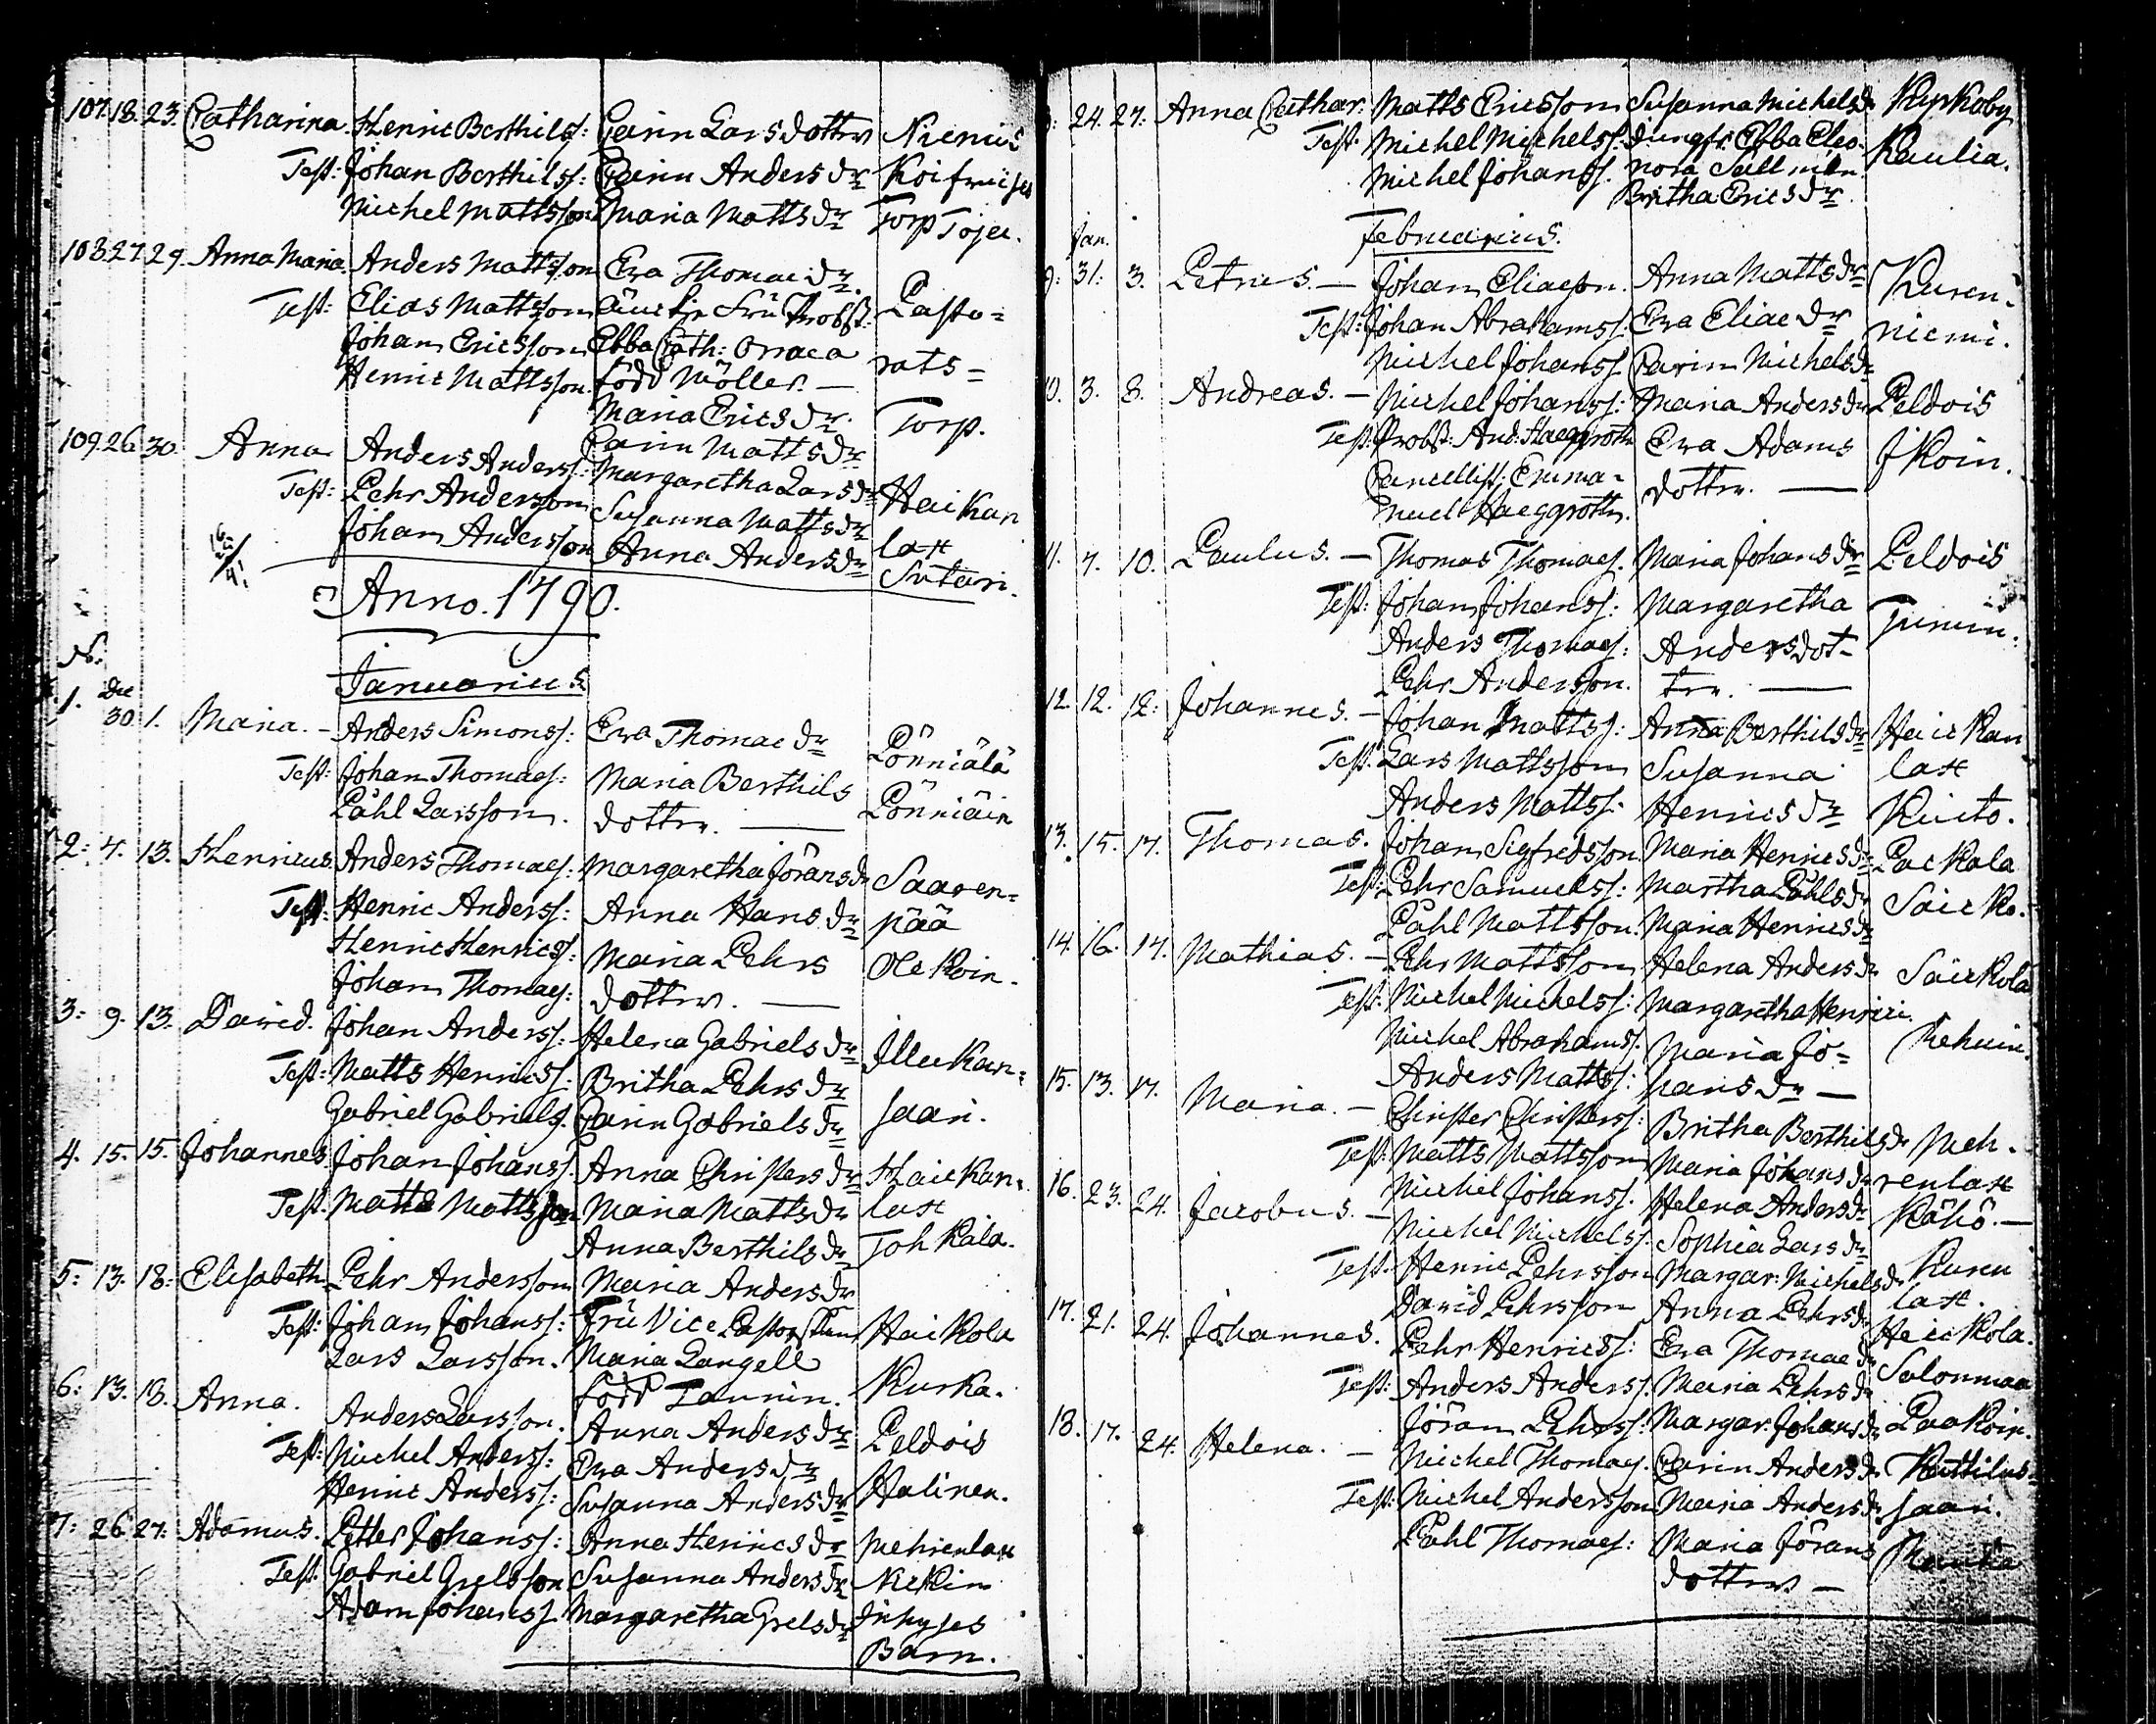 107. 18. 23. Catharina. Henric Berthilss: Carin Larsdotter Niemis
Test: Johan Berthilss: Carin Anders dr
Michel Mattsson Maria Matts dr Torp Tojea.
108. 27. 29. Anna Maria. Anders Mattsson Eva Thomae dr.
Test: Elias Mattsson Fru Probst: Pasto=
Johan Ericsson Ebba Cath: Orraea rats=
Henric Mattsson född Möller. —
Maria Erics dr. Torp.
109. 26. 30. Anna Anders Anderss: Carin Matts dr
Test: Pehr Andersson Margaretha Lars dr Haikan
Susanna Matts dr
Johan Andersson Anna Anders dr lax
Sutari.
Anno. 1790.
No.
Januarius
1. Dec 30. 1. Maria. - Anders Simonss: Eva Thomae dr Pönniälä
Test: Johan Thomaes: Maria Berthils
Påhl Larsson. dotter. — Pönniäin
2: 4. 13. Henricus. Anders Thomaes: Margaretha Jörans dr Saaren=
Test: Henric Anderss: Anna Hans dr pää
Henric Henricss: Maria Pehrs Olckoin.
Johan Thomaes: dotter. —
3: 9. 13. David. Johan Anderss: Helena Gabriels dr Illukan=
Test: Matts Henricss: Britha Pehrs dr
Gabriel Gabrielss. Carin Gabriels dr saari.
4. 15. 15. Johannes. Johan Johanss. Anna Christers dr Haickan=
Test. Matts Mattsson Maria Matts dr lax
Anna Berthils dr Tohkala.
5: 13. 18: Elisabeth Pehr Andersson Maria Anders dr
Test: Johan Johanss: Fru Vice Pastorskan Haikola
Lars Larsson. Maria Langell
född Taurin. Kurka.
6: 13. 18. Anna. Anders Larsson. Anna Anders dr Peldois
Test: Michel Anderss: Eva Anders dr
Henric Anderss: Susanna Anders dr Halinen.
7: 26 27: Adamus. Petter Johanss: Anna Henrics dr Mehrenlax
Test. Gabriel Grelsson Susanna Anders dr
Adam Johanss. Margaretha Grels dr Inhyses
Barn.
8: 24. 27. Anna Cathar: Matts Ericsson Susanna Michels dr Kyrkoby
Test. Michel Michelss. Jungfr. Ebba Eleo=
Michel Johanss. nora Kaulia.
Britha Erics dr.
Jan. Februarius.
9: 31. 3. Petrus. — Johan Eliaeson. Anna Matts dr Kuren=
Test: Johan Abrahamss: Eva Eliae dr niemi.
Michel Johanss. Carin Michels dr
10. 3. 8. Andreas. — Michel Johanss: Maria Anders dr Peldois
Test. Probst: And: Haeggroth Eva Adams
Cancellist: Emma- dotter. —
nuel Haeggroth.
11. 7. 10. Paulus. — Thomas Thomaes. Maria Johans dr Peldois
Test: Johan Johanss: Margaretha
Anders Thomaes: Andersdot-
Pehr Andersson. ter. —
12. 12. 12: Johannes. — Johan Mattss: Anna Berthils dr Haickan
Test. Lars Mattsson Susanna lax
Anders Mattss. Henrics dr Kuito.
13. 15. 17. Thomas. Johan Sigfredsson. Maria Henrics dr Packala
Test: Pehr Samuelss: Martha Påhls dr
Påhl Mattsson. Maria Henrics dr
14. 16. 17. Mathias. — Pehr Mattsson Helena Anders dr Säickölä
Test. Michel Michelss: Margaretha Henrici.
Michel Abrahamss. Maria Jo=
Anders Mattss: hans dr —
15. 13. 17. Maria. — Christer Christerss: Britha Berthils dr Meh-
Test. Matts Mattsson Maria Johans dr renlax
Michel Johanss. Helena Anders dr Kähö. —
16. 23. 24. Jacobus. — Michel Michelss. Sophia Lars dr Kuren
Test. Henric Pehrsson Margar: Michels dr lax.
David Pehrsson Anna Pehrs dr
17. 21. 24. Johannes. Pehr Henricss: Eva Thomae dr Haickola.
Test: Anders Anderss. Maria Pehrs dr Salonmaa
Jöran Pehrss: Margar: Johans dr
18. 17. 24. Helena. — Michel Thomaes. Carin Anders dr
Test: Michel Andersson Maria Anders dr saari.
Påhl Thomaes: Maria Jörans
dotter —